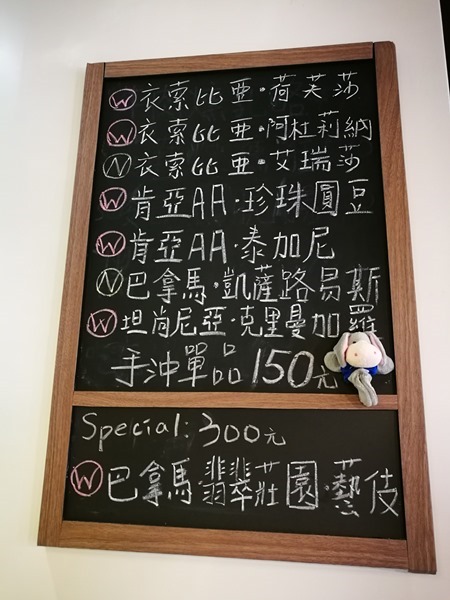 W 衣索比亞·荷芙莎
W 衣索比亞·阿杜莉納
N 衣索比亞·艾瑞莎
W 肯亞AA·珍珠圓豆
W 肯亞AA·泰加尼
N 巴拿馬·凱薩路易斯
W 坦尚尼亞·克里曼加羅
手沖單品150元
Special:300元
W 巴拿馬·翡翠莊園·藝伎